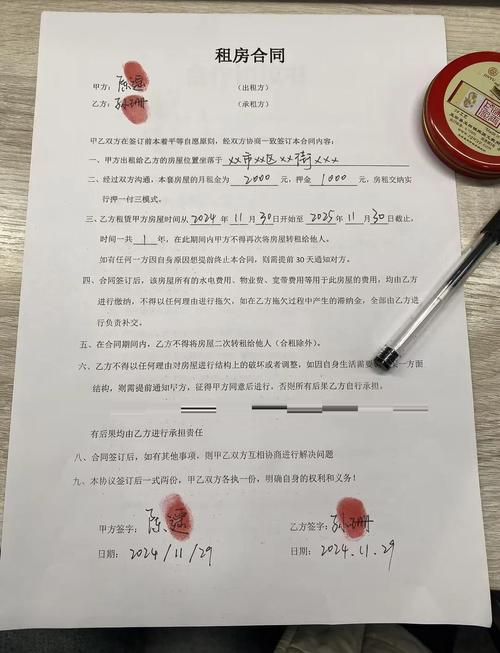 租房合同
甲方：陈 （出租方）
乙方：孙珊 （承租方）
甲乙双方在签订前本着平等自愿原则，经双方协商一致签订本合同内容：
一、甲方出租给乙方的房屋位置坐落于 xx市xx区xx街xxx
二、经过双方沟通，本套房屋的月租金为 2000 元，押金 1000 元，房租交纳实
行押一付三模式。
三、乙方租赁甲方房屋时间从2024年 11 月 30日开始至 2025年 11 月 30日截止，
时间一共 1 年，在此期间内甲方不得再次将房屋转租给他人。
如有任何一方因自身原因想提前终止本合同，则需提前 30 天通知对方。
四、合同签订后，该房屋所有的水电费用、物业费、宽带费用等用于此房屋的费用，均由乙方
进行缴纳，不得以任何理由进行拖欠，如在乙方拖欠过程中产生的滞纳金，全部由乙方进
行负责补交。
五、在合同期间内，乙方不得将房屋二次转租给他人（合租除外）。
六、乙方不得以任何理由对房屋进行结构上的破坏或者调整，如因自身生活需要 一方面
结构，则需提前通知甲方，征得甲方同意后进行，否则所有后果乙方自行承担。
有后果均由乙方进行承担责任
八、合同签订后，如有其他事项，则甲乙双方互相协商进行解决问题
九、本协议签订后一式两份，甲乙双方各执一份，明确自身的权利和义务！
甲方签字：陈 乙方签字：孙珊
日期：2024/11/29 日期：2024.11.29